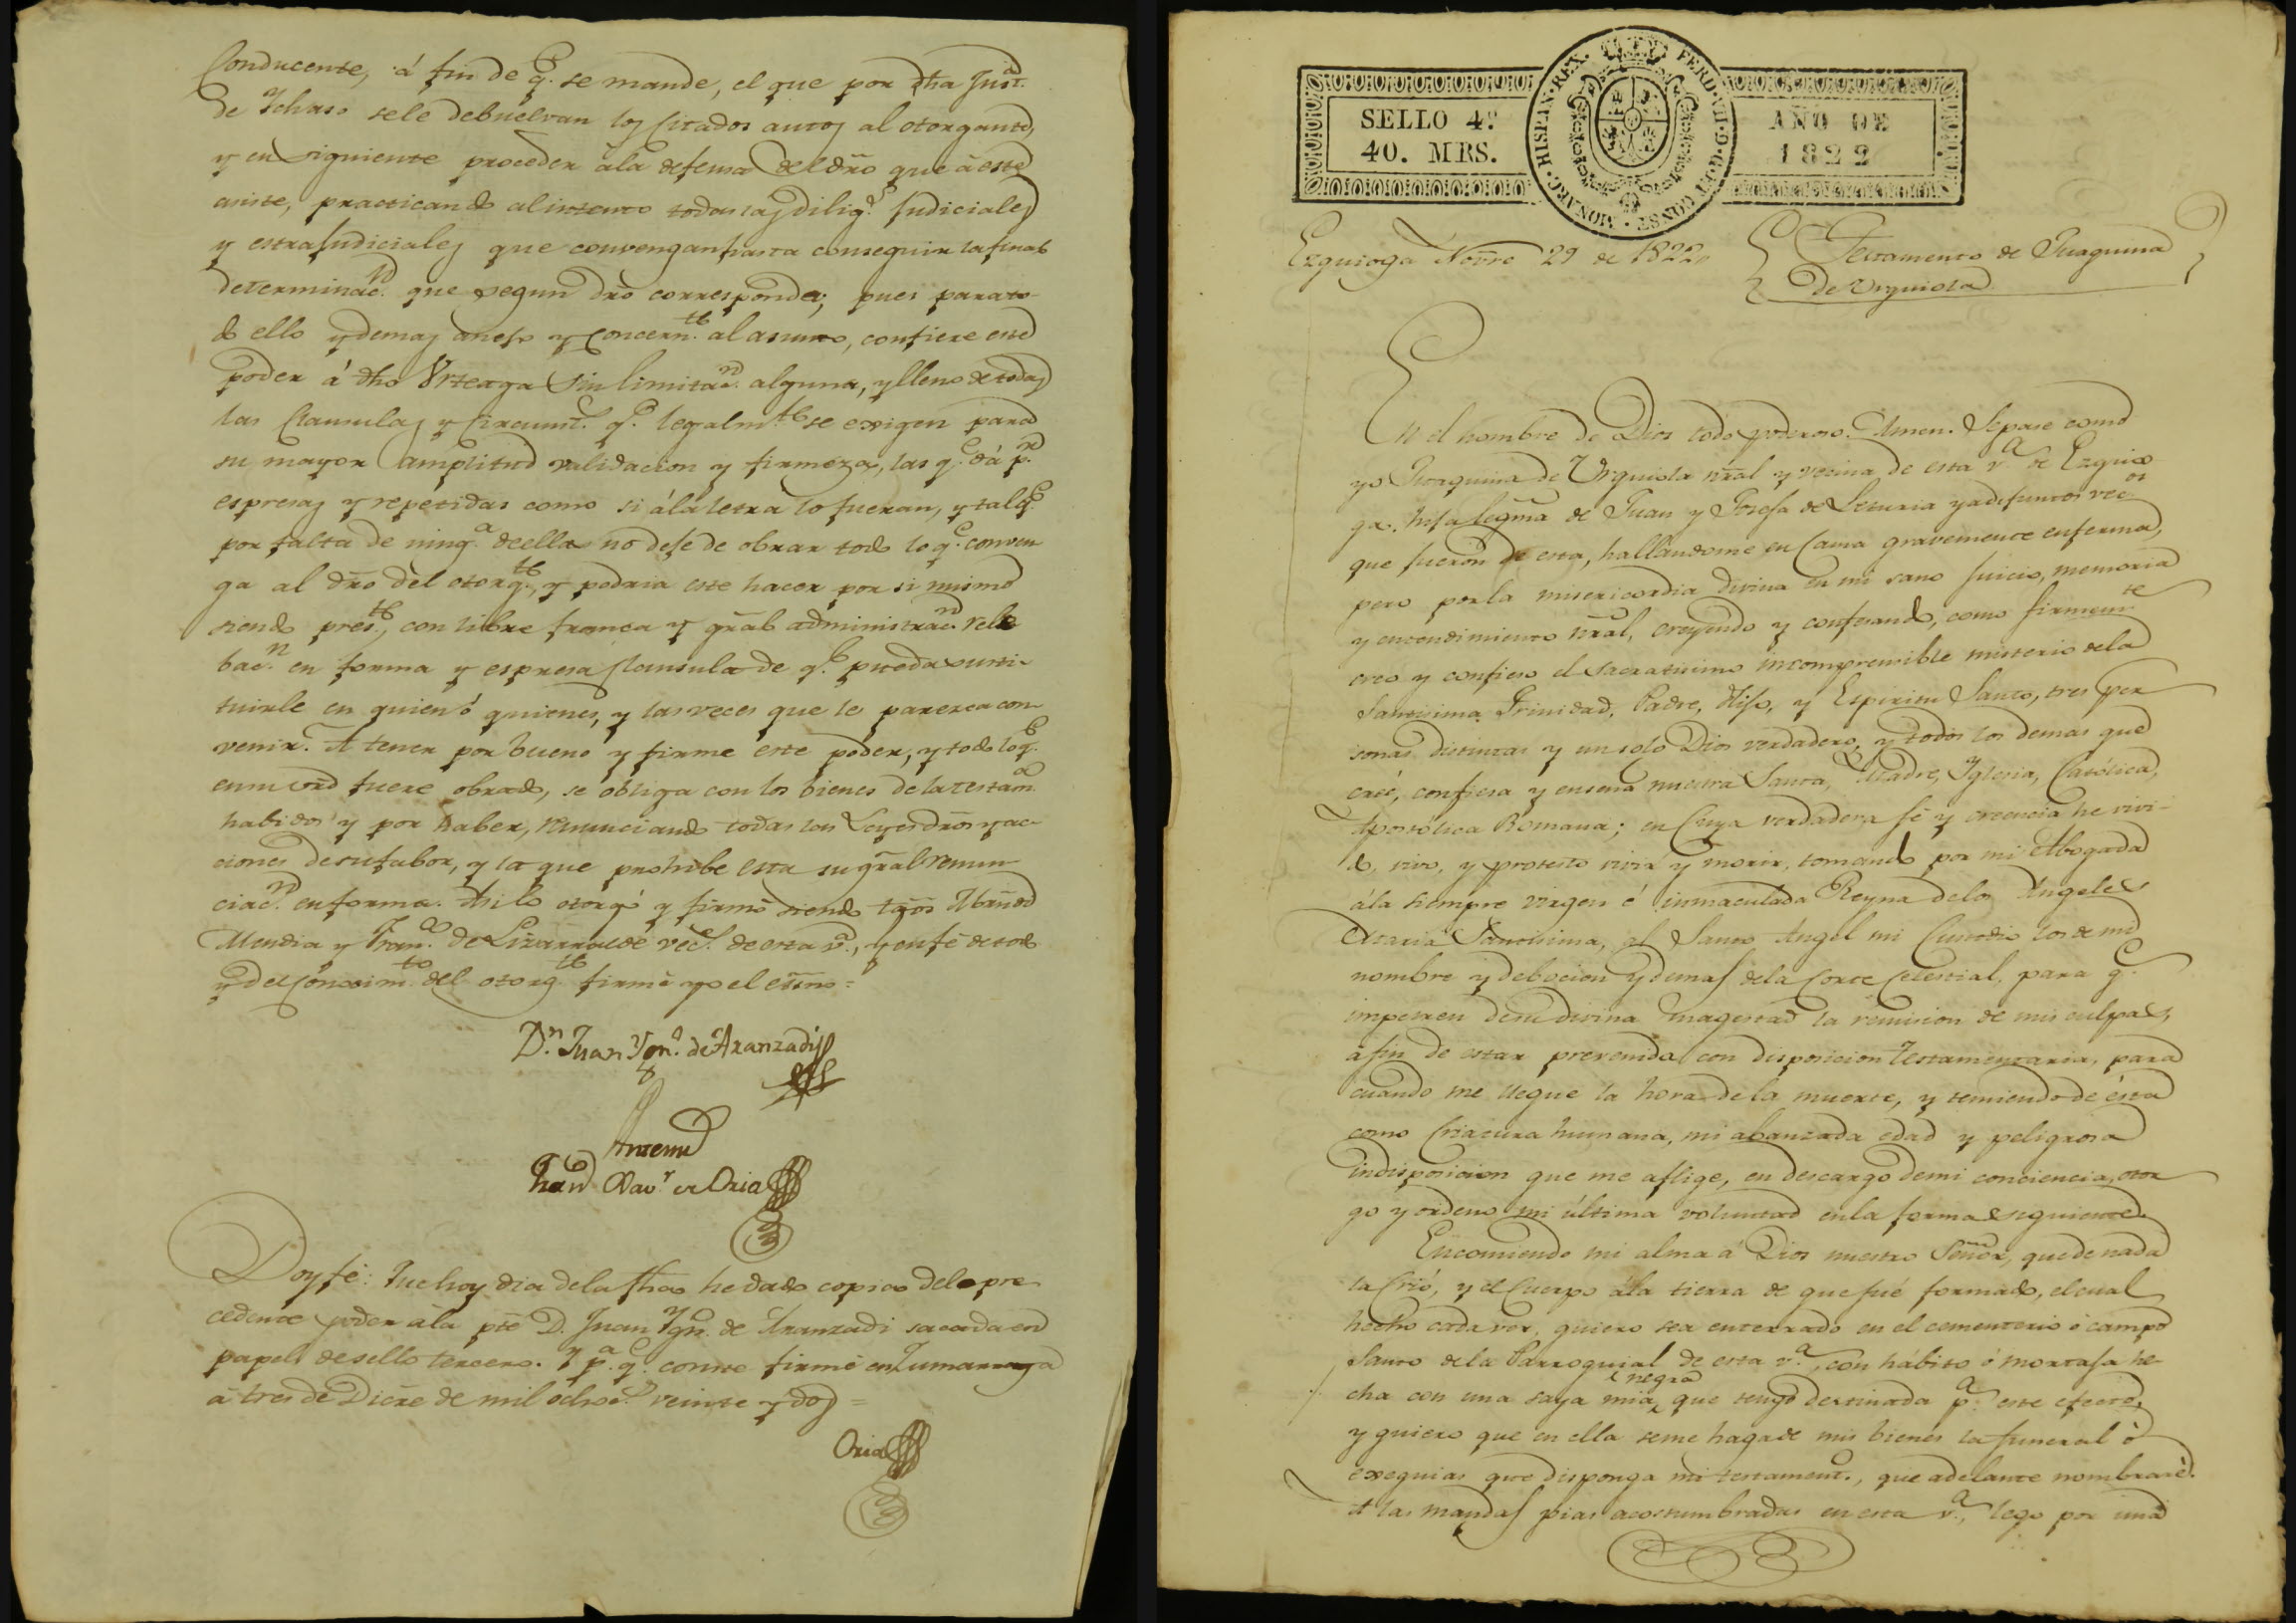 Conducente, á fin de q.e se mande, el que por dha Just.a
de Ichaso sele debuelvan los Citados autos al otorgante,
y en siguiente proceder àla defensa del dro que à este
asiste, practicando al intento todas las dilig.s Judiciales
y estrajudiciales que convengan hasta conseguir la final
determinac.n que segun dro corresponda; pues para to-
do ello y demas anejo y concern.te al asunto, confiere este
poder á dho Urteaga sin limitac.n alguna, y lleno de todas
las Clausulas y Circunst.s q.e legalm.te se exigen para
su mayor amplitud validacion y firmeza, las q.e dá p.r
espresas y repetidas como si ála letra lo fueran, y tal q.e
por falta de ning.a deella no deje de obrar todo lo q.e conven
ga al dro del otorg.te, y podria este hacer por si mismo
siendo pres.te, con libre franca y gral administrac.n rele
bac.n en forma y espresa Clausula de q.e pueda susti-
tuirle en quien ó quienes, y las veces que le parezca con-
venir. A tener por bueno y firme este poder, y todo lo q.e
en su vird fuere obrado, se obliga con los bienes de la testam.a
habidos y por haber, renunciando todas las Leyes dros y ac-
ciones de su fabor, y la que prohibe esta su gral renun
ciac.n en forma. Asi lo otorgó y firmó siendo tgos
Mendia y Fran.co de Lizarralde vec.s de esta v.a, y en fé de todo
y del Conocim.to del otorg.te firmé yo el esno =
D.n Juan Ygn.o de Aranzadi
Antemi
Oria
Doy fé: Que hoy dia dela fha he dado copia del pre
cedente poder àla pte D. Juan Ygn.o de Aranzadi sacada en
papel de sello tercero. Y p.a q.e conste firmé en Zumarraga
à tres de Dicre de mil ochoc.s veinte y dos =
Oria
SELLO 4º
40. MRS.
MONARC. HISPAN. REX. FERD. VII. D. G. ET CONST.
AÑO DE
1822
Ezquioga Novre 29 de 1822
Testamento de Juaquina
de Urquiola
En el nombre de Dios todo poderoso. Amen. Sepase como
yo Joaquina de Urquiola nral y vecina de esta v.a de Ezquio
ga. hija legma de Juan y Josefa de Leturia ya difuntos vec.os
que fueron de esta, hallandome en Cama gravemente enferma,
pero por la misericordia divina en mi sano juicio, memoria
y entendimiento nral, creyendo y confesando, como firmem.te
creo y confieso el sacratisimo incomprensible misterio dela
Santisima Trinidad, Padre, Hijo, y Espiritu Santo, tres per
sonas distintas y un solo Dios verdadero, y todos los demas que
creé, confiesa y enseña nuestra Santa, Madre, Yglesia, Católica,
Apostólica Romana; en Cuya verdadera fé y creencia he vivi-
do, vivo, y protesto vivir y morir, tomando por mi Abogada
ála siempre virgen é inmaculada Reyna delos Angeles
Maria Santisima, al Santo Angel mi Custodio los de mi
nombre y debocion y demas dela Corte Celestial, para q.e
impetren desu divina magestad la remision de mis culpas,
à fin de estar prevenida con disposicion Testamentaria, para
cuando me llegue la hora de la muerte, y temiendo de ésta
como Criatura humana, mi abanzada edad y peligrosa
indisposicion que me aflige, en descargo demi conciencia, otor
go y ordeno mi última voluntad enla forma siguiente.
Encomiendo mi alma á Dios nuestro Señor, que de nada
la Crió, y el Cuerpo àla tierra de que fué formado, el cual
hecho cadaver, quiero sea enterrado en el cementerio ó campo
Santo dela Parroquial de esta v.a, con hábito ó mortaja he-
cha con una saya mia negra que tengo destinada p.a este efecto,
y quiero que en ella seme haga de mis bienes la funeral ò
exequias que disponga mi testament.o, que adelante nombraré.
A las mandas pias acostumbradas en esta v.a, lego por una